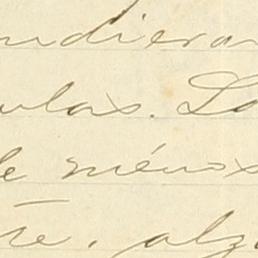 ndieran
ulas. Lo
le ménos
te. alg